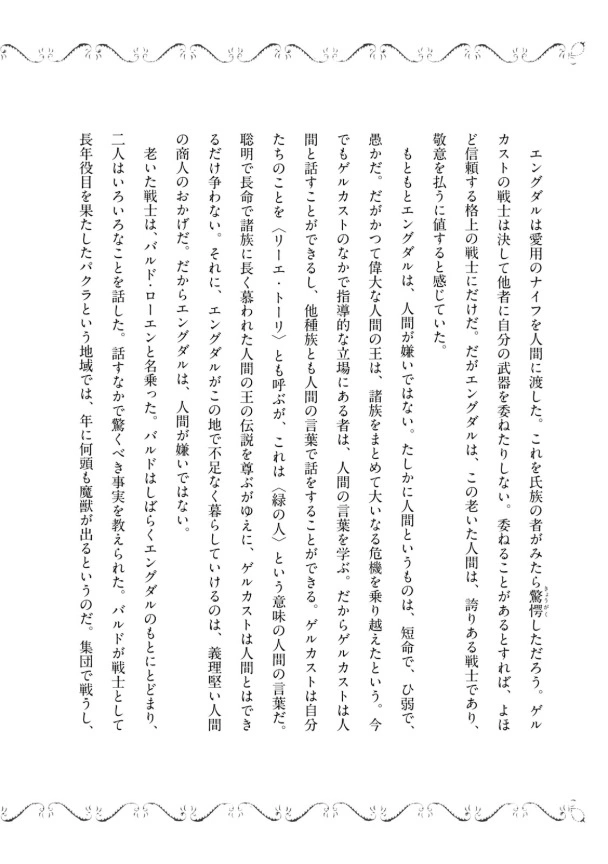 エングダルは愛用のナイフを人間に渡した。これを氏族の者がみたら驚愕しただろう。ゲル
きょうがく
カストの戦士は決して他者に自分の武器を委ねたりしない。委ねることがあるとすれば、よほ
ど信頼する格上の戦士にだけだ。だがエングダルは、この老いた人間は、誇りある戦士であり、
敬意を払うに値すると感じていた。
もともとエングダルは、人間が嫌いではない。たしかに人間というものは、短命で、ひ弱で、
愚かだ。だがかつて偉大な人間の王は、諸族をまとめて大いなる危機を乗り越えたという。今
でもゲルカストのなかで指導的な立場にある者は、人間の言葉を学ぶ。だからゲルカストは人
間と話すことができるし、他種族とも人間の言葉で話をすることができる。ゲルカストは自分
たちのことを〈リーエ・トーリ〉とも呼ぶが、これは〈緑の人〉という意味の人間の言葉だ。
聡明で長命で諸族に長く慕われた人間の王の伝説を尊ぶがゆえに、ゲルカストは人間とはでき
るだけ争わない。それに、エングダルがこの地で不足なく暮らしていけるのは、義理堅い人間
の商人のおかげだ。だからエングダルは、人間が嫌いではない。
老いた戦士は、バルド・ローエンと名乗った。バルドはしばらくエングダルのもとにとどまり、
二人はいろいろなことを話した。話すなかで驚くべき事実を教えられた。バルドが戦士として
長年役目を果たしたパクラという地域では、年に何頭も魔獣が出るというのだ。集団で戦うし、